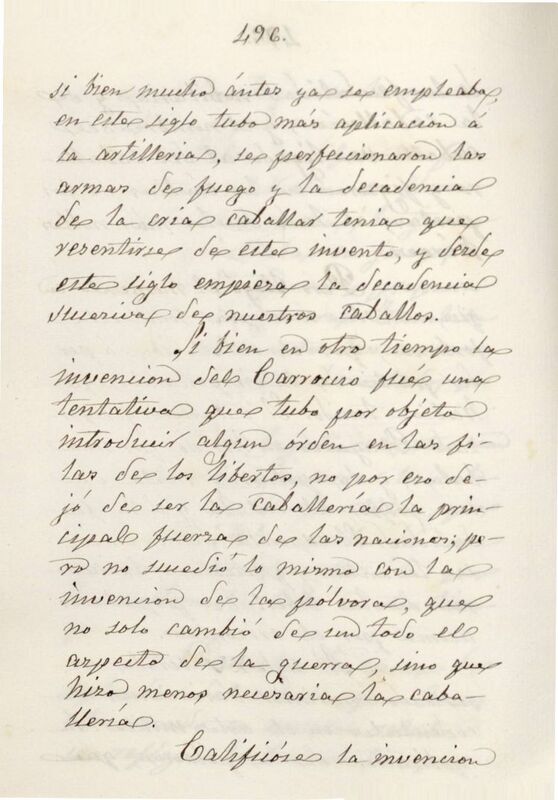 496.
si bien mucho ántes ya se empleaba,
en este siglo tubo más aplicación á
la artilleria, se perfeccionaron las
armas de fuego y la decadencia
de la cria caballar tenia que
resentirse de este invento, y desde
este siglo empieza la decadencia
sucesiva de nuestros caballos.
Si bien en otro tiempo la
invencion del Carrocio fué una
tentativa que tubo por objeto
introducir algun órden en las fi-
las de los libertos, no por eso de-
jó de ser la caballería la prin-
cipal fuerza de las naciones; pe-
ro no sucedió lo mismo con la
invencion de la pólvora, que
no solo cambió de un todo el
aspecto de la guerra, sino que
hizo menos necesaria la caba-
llería.
Calificóse la invencion